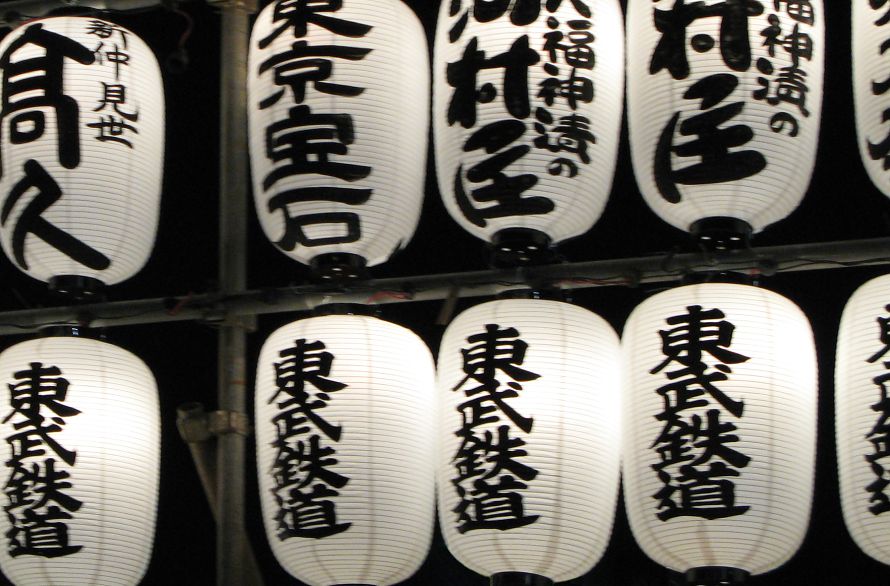 新仲見世
髙久
東京宝石
福神漬の
村屋
福神漬の
村屋
東武鉄道
東武鉄道
東武鉄道
東武鉄道